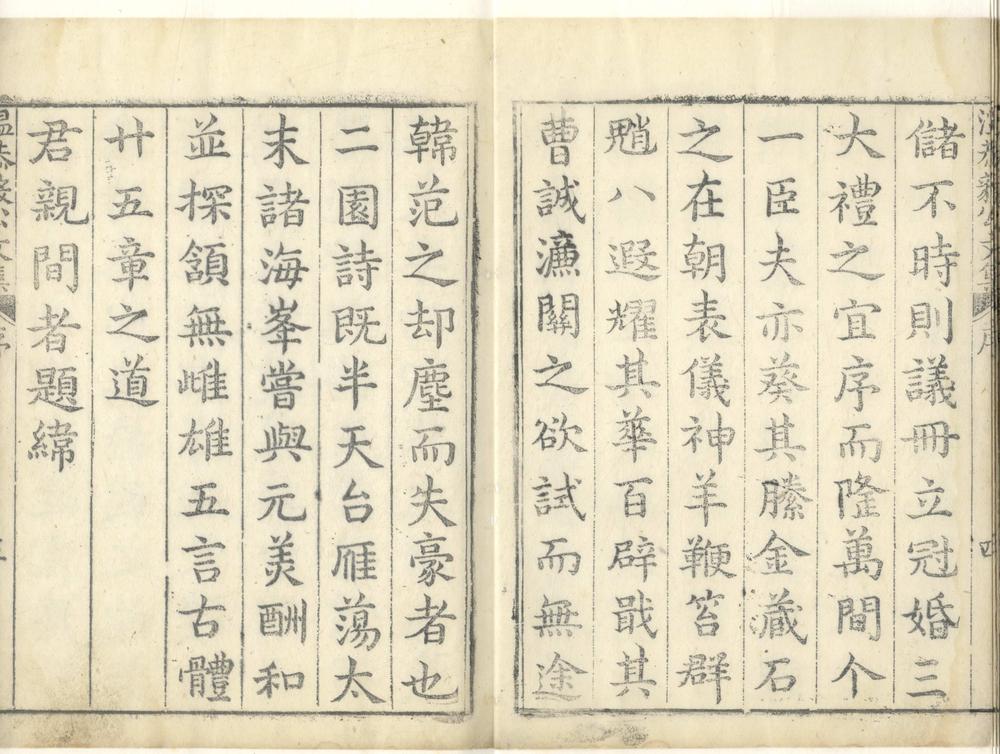 儲不時則議冊立冠婚三
大禮之宜序而隆萬間个
一臣夫亦葵其縢金藏石
之在朝表儀神羊鞭笞群
魈八遐耀其華百辟戢其
曹誠濂關之欲試而無途
韓范之却塵而失豪者也
二園詩既半天台雁蕩太
末諸海峯嘗與元美酬和
並探頷無雌雄五言古體
廿五章之道
君親間者題緯